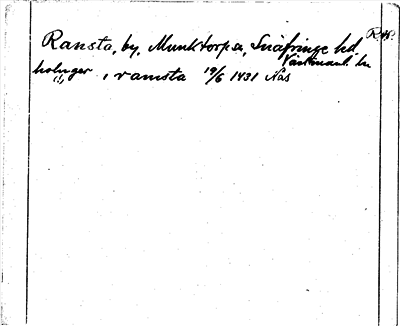 Ransta, by, Munktorp sn, Snäfringe hd R.48.
Västmanl. ln
holmger i ramsta 19/6 1431 Nas
(!)